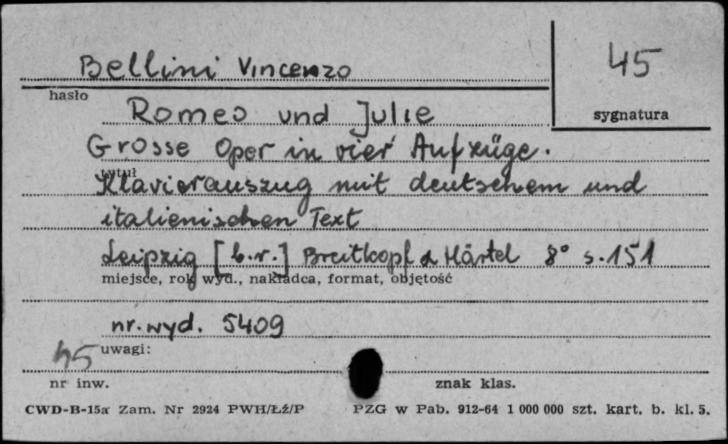 Bellini Vincenzo
45
hasło
sygnatura
Romeo und Julie
Grosse Oper in vier Aufzüge.
tytuł
Klavierauszug mit deutschem und
italienischen Text
Leipzig [b.r.] Breitkopf & Härtel 8° s. 151
miejsce, rok wyd., nakładca, format, objętość
nr. wyd. 5409
uwagi:
45
nr inw.
znak klas.
CWD-B-15a Zam. Nr 2924 PWH/ŁŹ/P PZG w Pab. 912-64 1 000 000 szt. kart. b. kl. 5.